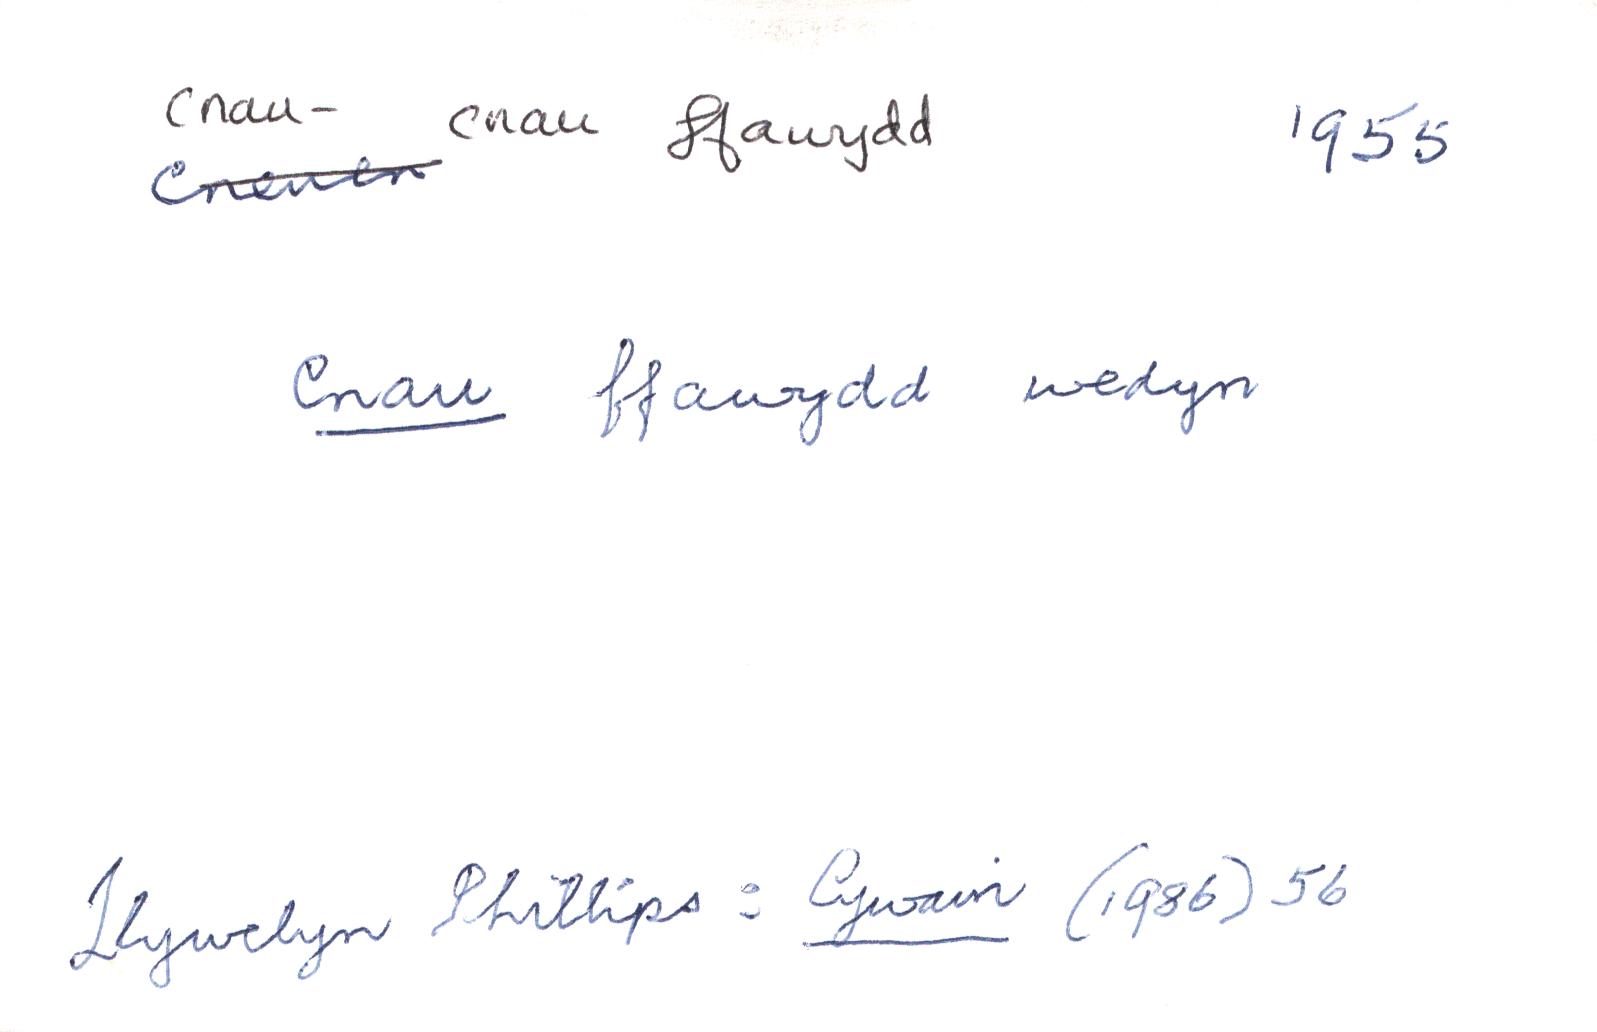 cnau- cnau ffawydd 1955
Cneuen
Cnau ffawydd wedyn
Llywelyn Phillips : Cywain (1986) 56